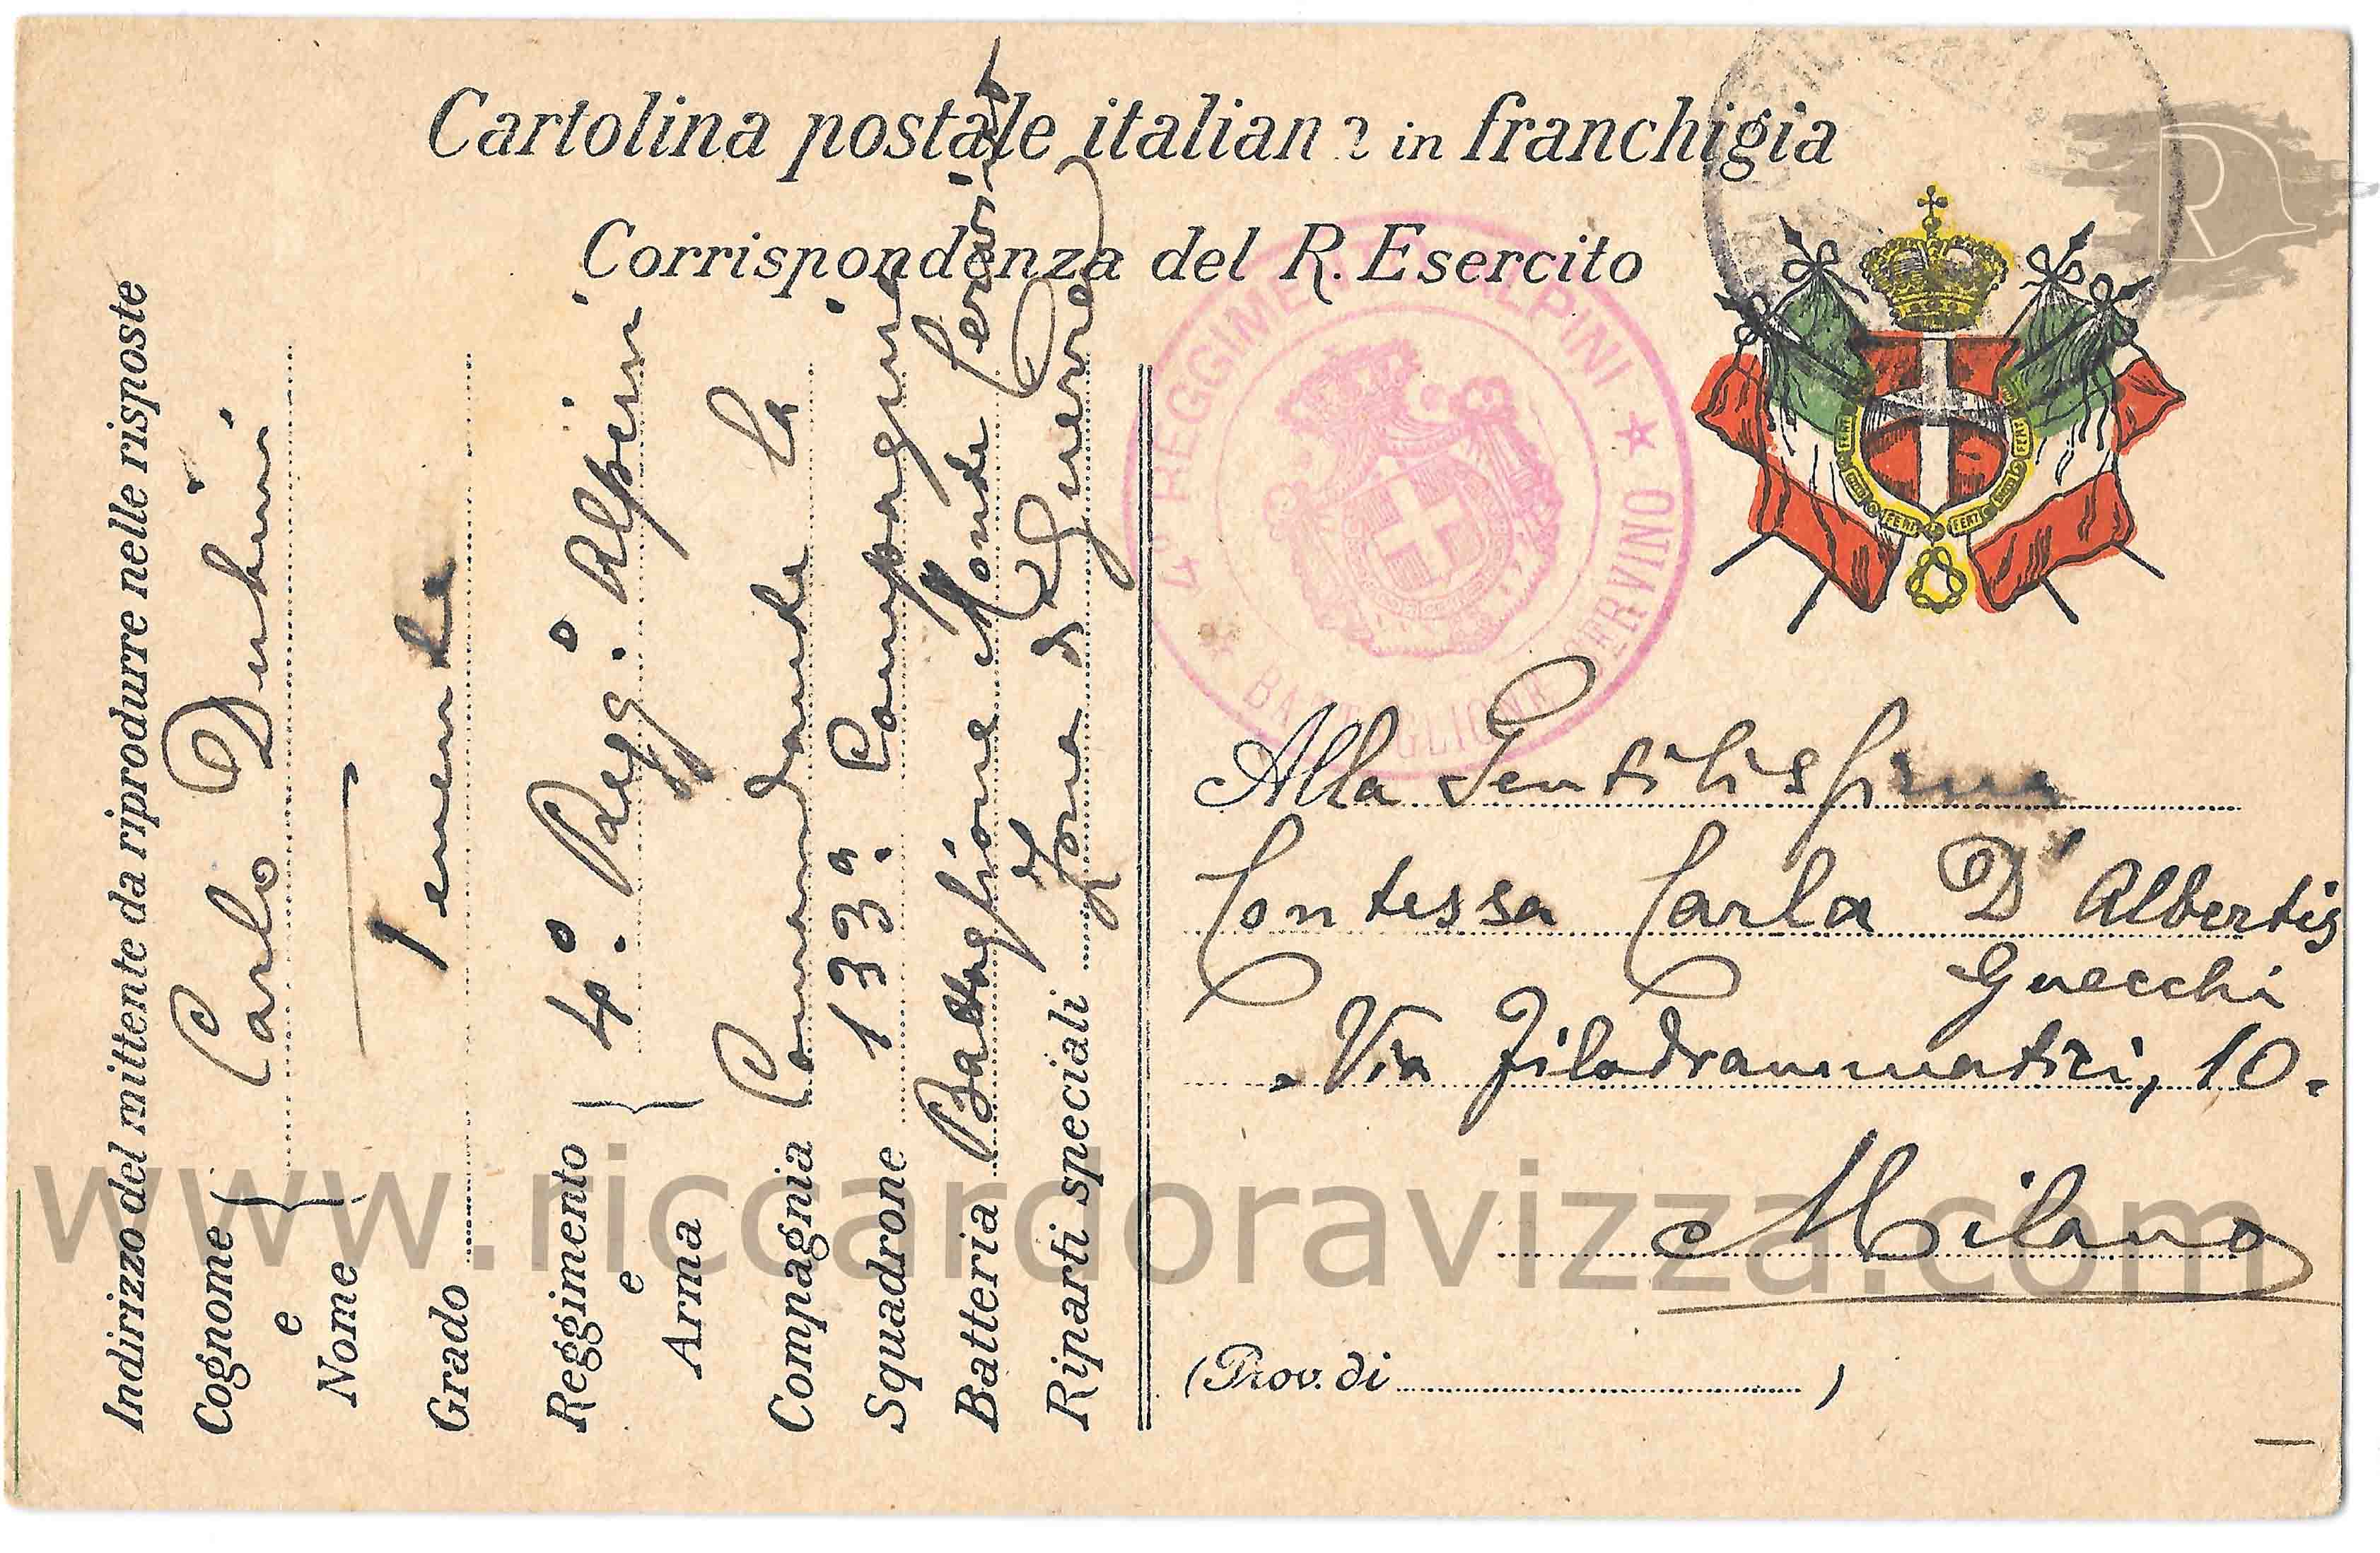 Cartolina postale italiana in franchigia
Corrispondenza del R. Esercito
4° REGGIMENTO ALPINI
* BATTAGLIONE CERVINO *
FERT FERT FERT FERT
Alla Gentilissima
Contessa Carla D'Albertis
Gnecchi
Via Filodrammatici, 10.
Milano
(Prov. di )
Indirizzo del mittente da riprodurre nelle risposte
Cognome e Nome Carlo Dubini
Grado Tenente
Reggimento e Arma 4°. Regg.° Alpini
Compagnia Comandante la
Squadrone 133ª. Compagnia
Batteria Battaglione Monte Cervino
Riparti speciali Zona di Guerra
www.riccardoravizza.com
R